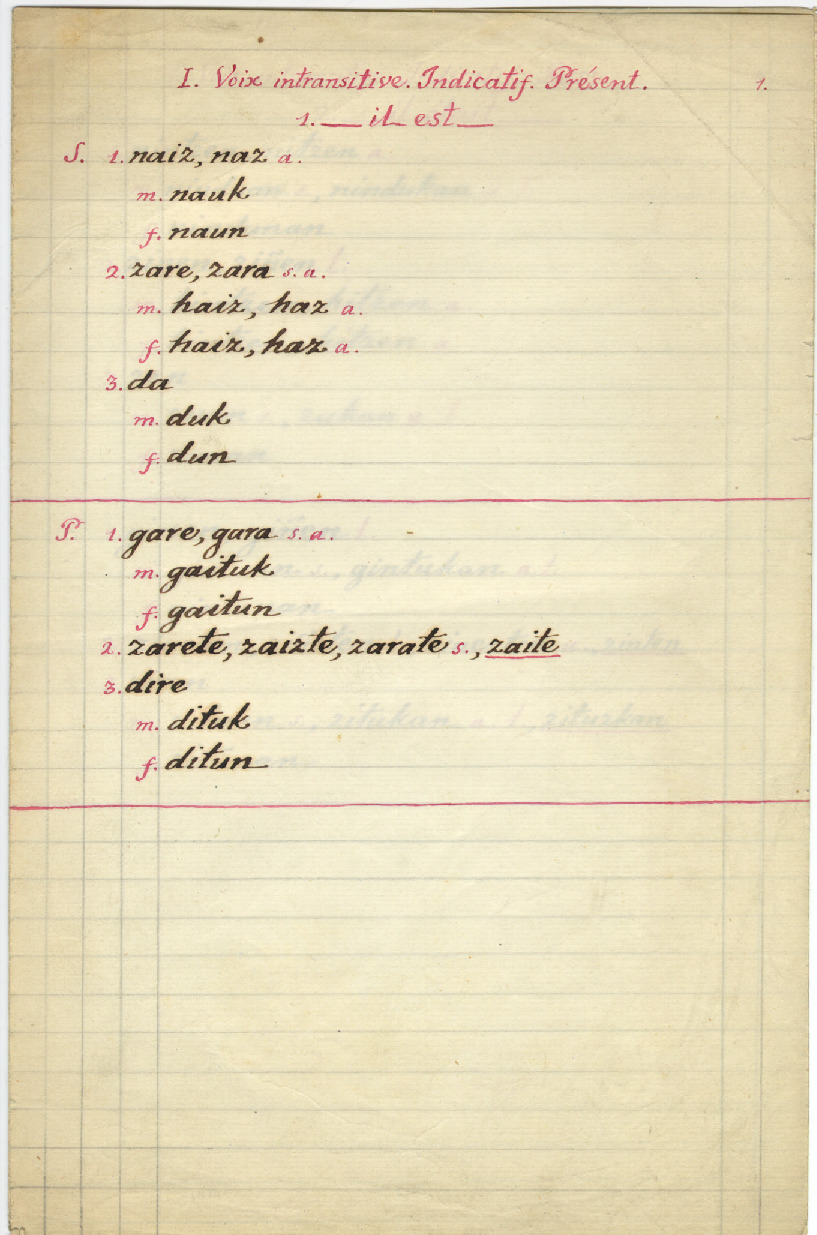 I. Voix intransitive. Indicatif. Présent. 1.
1. __ il est __
S. 1. naiz, naz a.
m. nauk
f. naun
2. zare, zara s. a.
m. haiz, haz a.
f. haiz, haz a.
3. da
m. duk
f. dun
P. 1. gare, gara s. a.
m. gaituk
f. gaitun
2. zarete, zaizte, zarate s., zaite
3. dire
m. dituk
f. ditun